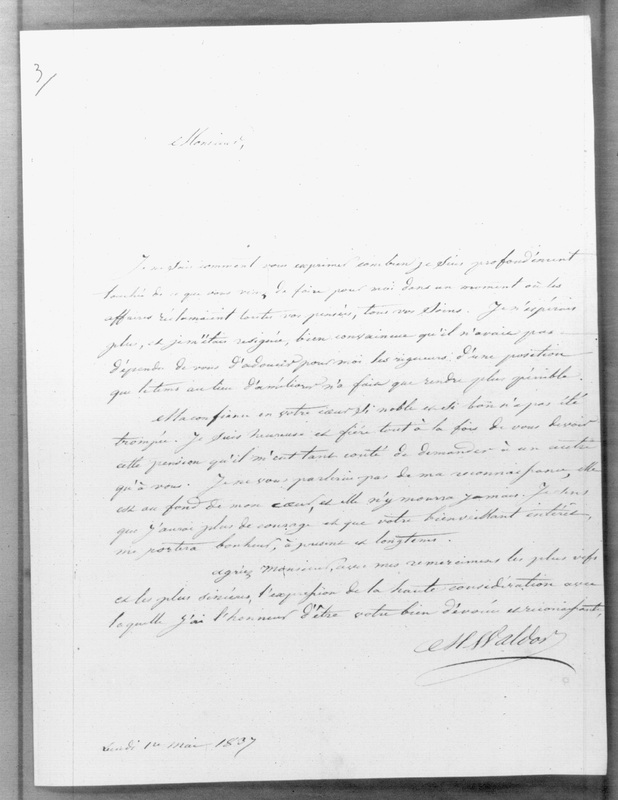 3/
Monsieur,
Je ne sais comment vous exprimer combien je suis profondément
touchée de ce que vous venez de faire pour moi dans un moment où les
affaires réclamaient toutes vos pensées, tous vos soins. Je n'espérais
plus, et je m'étais résignée, bien convaincue qu'il n'avait pas
dépendu de vous d'adoucir pour moi les rigueurs d'une position
que le tems au lieu d'améliorer n'a fait que rendre plus pénible.
Ma confiance en votre cœur si noble et si bon n'a pas été
trompée. Je suis heureuse et fière tout à la fois de vous devoir
cette pension qu'il m'eut tant couté de demander à un autre
qu'à vous. Je ne vous parlerai pas de ma reconnaissance, elle
est au fond de mon cœur, et elle n'y mourra jamais. Je sens
que j'aurai plus de courage et que votre bienveillant intérêt,
me portera bonheur, à présent et longtems.
agréez monsieur, avec mes remercimens les plus vifs
et les plus sincères, l'expression de la haute considération avec
laquelle j'ai l'honneur d'être votre bien dévouée et reconnaissante,
M Waldor
Lundi 1er mai 1837